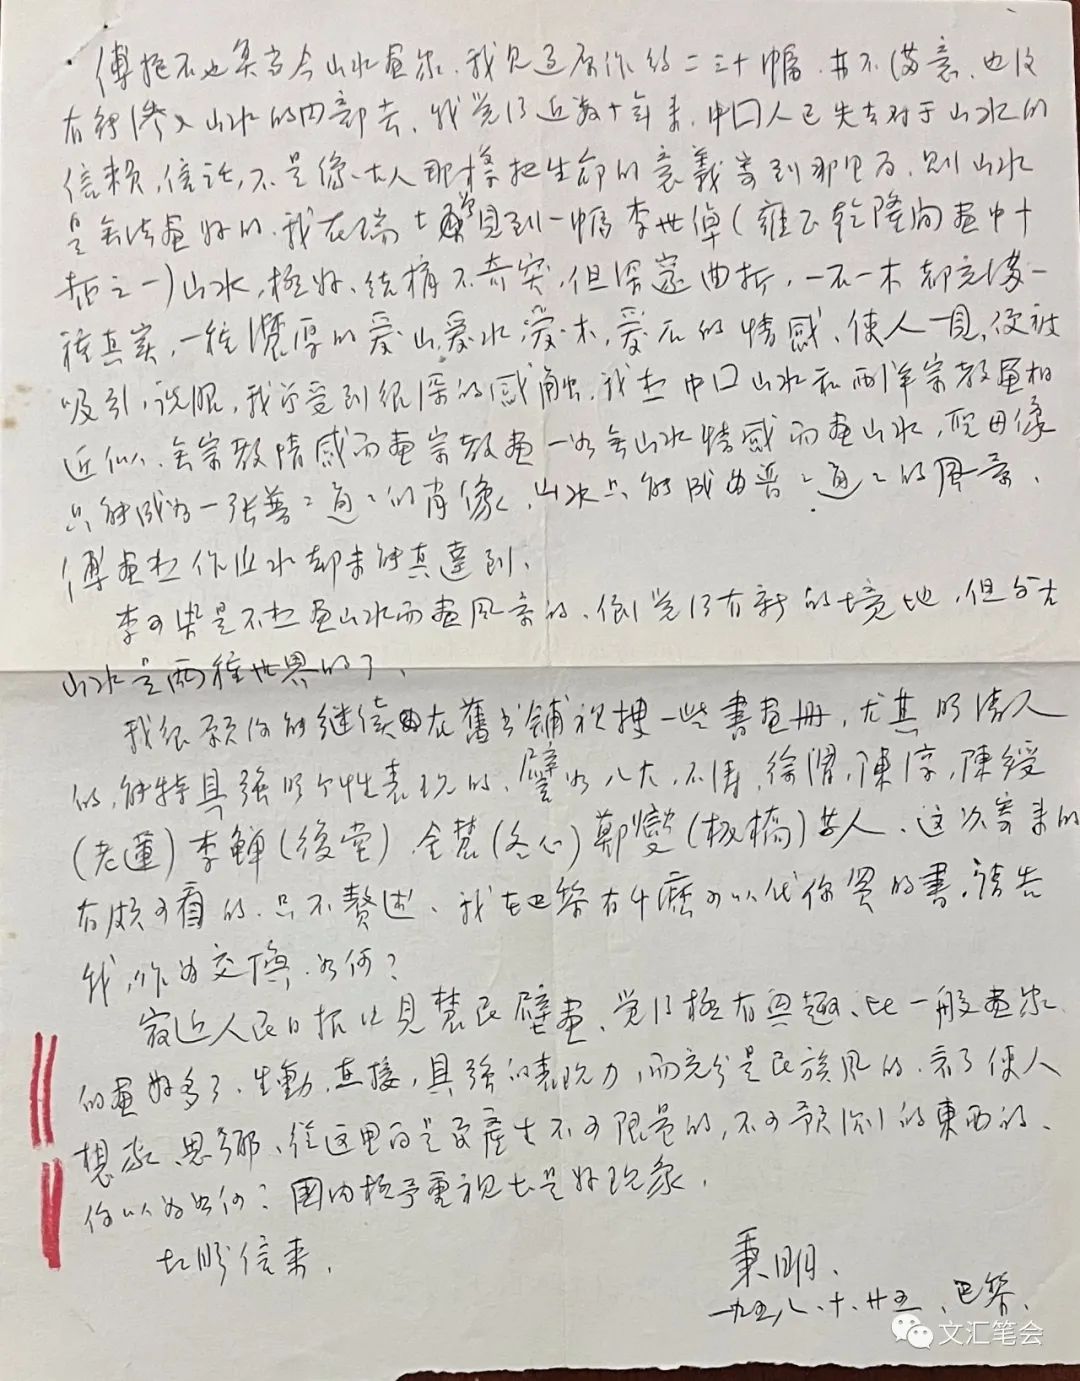 傅抱石也算当今山水画家，我见过原作约二三十幅，并不满意，也没
有能渗入山水的内部去，我觉得近数十年来，中国人已失去对于山水的
信赖，信託，不是像古人那样把生命的意義寄到那里面，则山水
是無法画好的。我在瑞士曾見到一幅李世倬（雍正乾隆间画中十
哲之一）山水，極好，结構不奇突，但深邃曲折，一石一木都充满一
種真实，一種濃厚的爱山，爱水，爱木，爱石的情感，使人一見，便被
吸引，说服，我曾受到很深的感触。我想中国山水和西洋宗教画相
近似，無宗教情感而画宗教画一如無山水情感而画山水，聖母像
只能成为一张普普通通的肖像，山水只能成为普普通通的风景，
傅画想作山水却未能真達到，
李可染是不想画山水而画风景的，倒觉得有新的境地，但与古
山水是两種世界的了，
我很願你能继续在舊书铺裡搜一些書画册，尤其明清人
的，能特具强烈个性表现的，譬如八大，石涛，徐渭，陳淳，陳綬
（老蓮）李鱓（後堂）金農（冬心）鄭燮（板橋）等人，这次寄来的
有颇可看的，只不贅述，我在巴黎有什麼可以代你買的書，請告
我，作为交换，如何？
最近人民日报上見農民壁画，觉得極有興趣，比一般画家
的画好多了，生動，直接，具强的表现力，而充分是民族风的，看了使人
想家，思鄉，從这里面是要產生不可限量的，不可预测的東西的，
你以为如何？国内極予重視也是好现象，
お盼信来，
秉明，
一九五八、十、廿五、巴黎，
文汇笔会